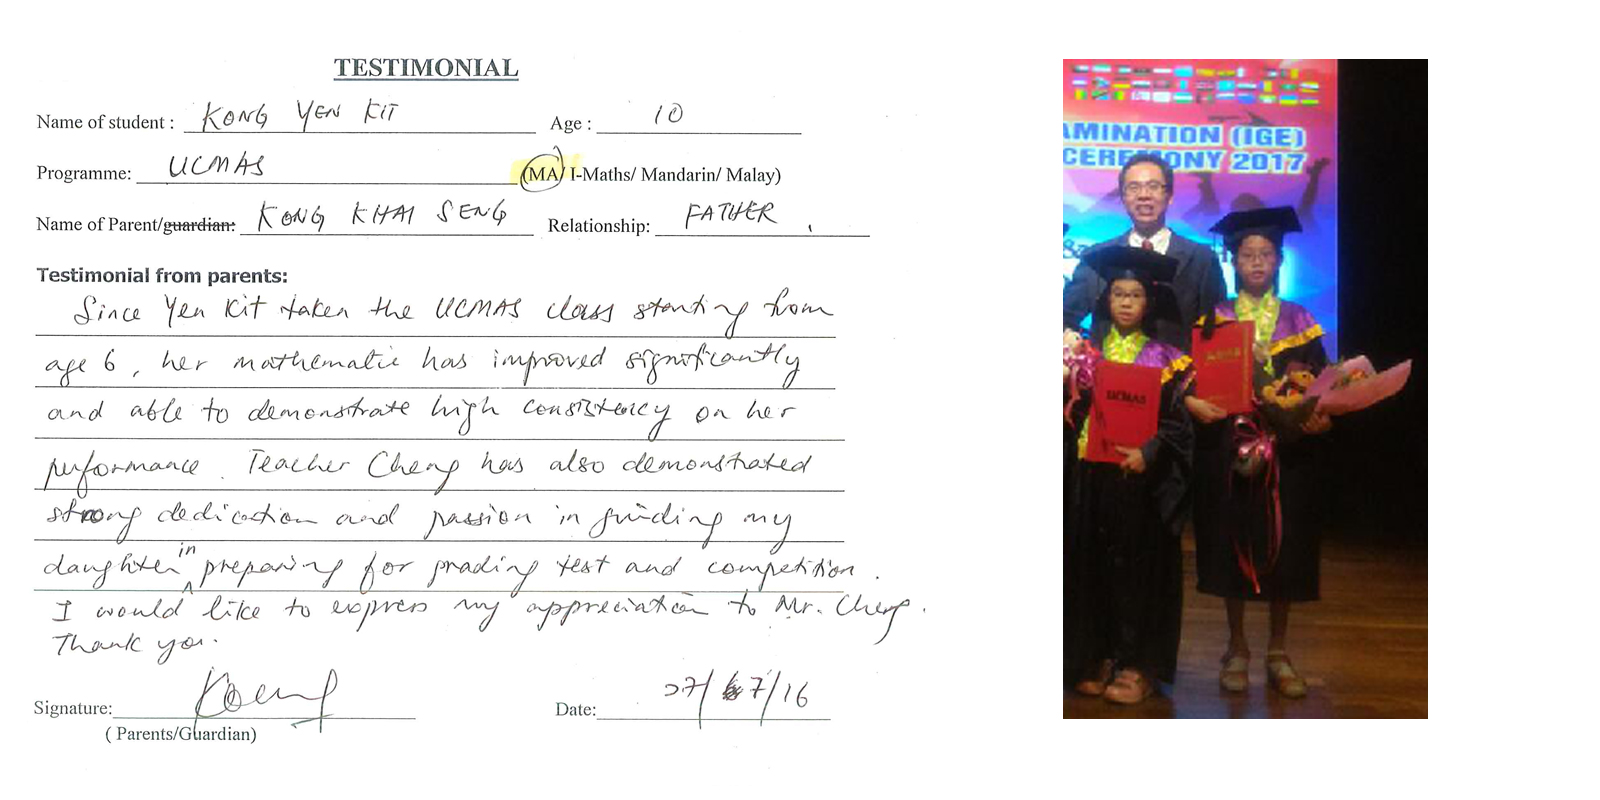 TESTIMONIAL
Name of student : KONG YEN KIT Age : 10
Programme: UCMAS (MA/ I-Maths/ Mandarin/ Malay)
Name of Parent/guardian: KONG KHAI SENG Relationship: FATHER
Testimonial from parents:
Since Yen Kit taken the UCMAS class starting from
age 6, her mathematic has improved significantly
and able to demonstrate high consistency on her
performance. Teacher Cheng has also demonstrated
strong dedication and passion in guiding my
daughter in preparing for grading test and competition.
I would like to express my appreciation to Mr. Cheng.
Thank you.
Signature: Date: 27/7/16
( Parents/Guardian)
AMINATION (IGE)
CEREMONY 2017
UCMAS
UCMAS